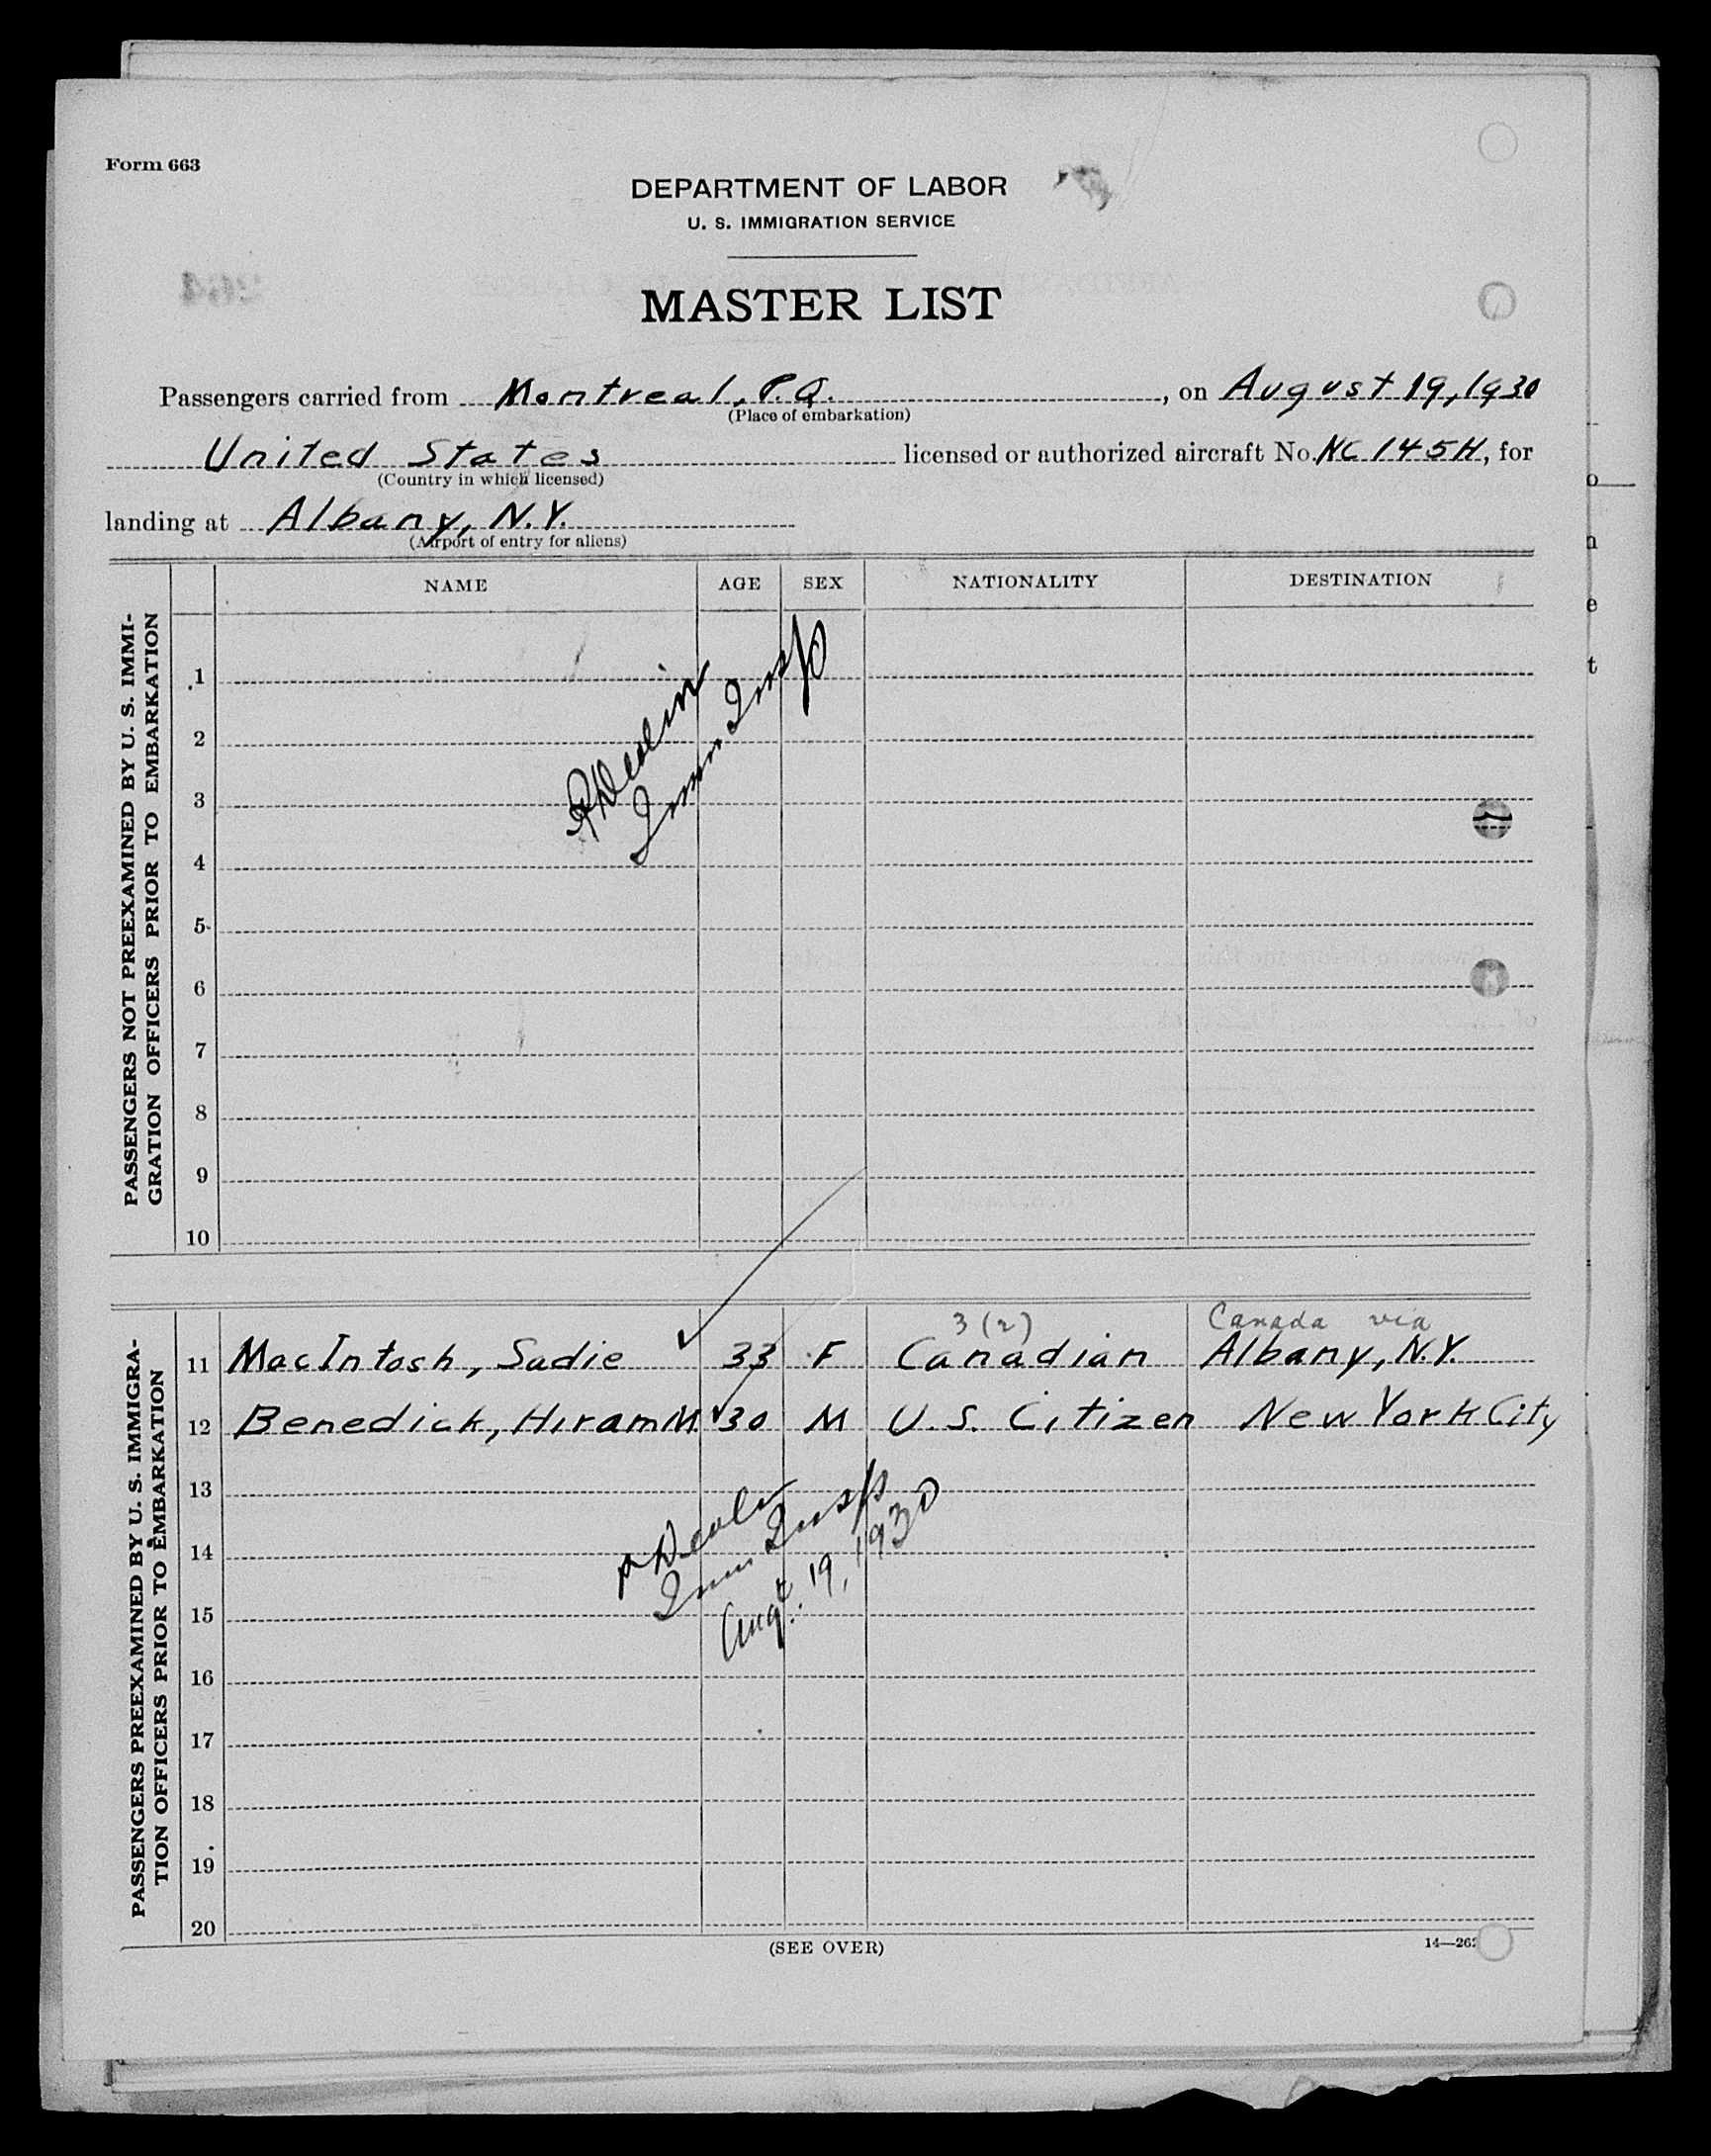 Form 663
DEPARTMENT OF LABOR
U. S. IMMIGRATION SERVICE
MASTER LIST
Passengers carried from Montreal, P.Q. , on August 19, 1930
(Place of embarkation)
United States licensed or authorized aircraft No. NC 145H, for
(Country in which licensed)
landing at Albany, N.Y.
(Airport of entry for aliens)
NAME AGE SEX NATIONALITY DESTINATION
PASSENGERS NOT PREEXAMINED BY U. S. IMMI-
GRATION OFFICERS PRIOR TO EMBARKATION
1
2
3
4
5
6
7
8
9
10
Imm Insp
PASSENGERS PREEXAMINED BY U. S. IMMIGRA-
TION OFFICERS PRIOR TO EMBARKATION
3 (2) Canada via
11 MacIntosh, Sadie 33 F Canadian Albany, N.Y.
12 Benedick, Hiram M. 30 M U.S. Citizen New York City
13
14
15
16
17
18
19
20
Imm Insp
Augt. 19, 1930
(SEE OVER)
14—262